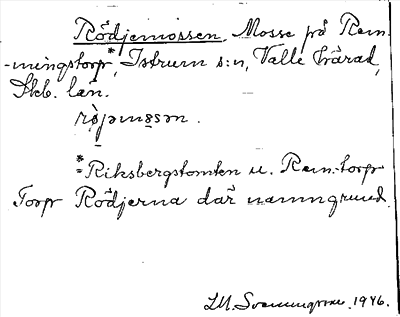 Rödjemossen. Mosse på Rem-
-mingstorp*, Istrum s:n, Valle härad,
Skb. län.
rø̀jəmo̲sən.
*=Riksbergstomten u. Rem:torp
Torp Rödjerna där namngrund.
1946.